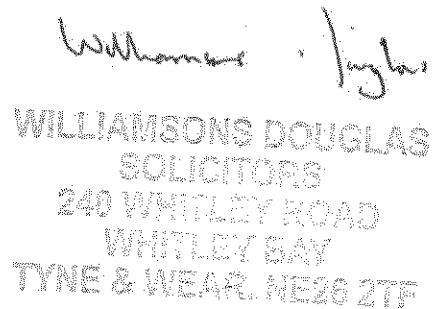 Williamsons Douglas
WILLIAMSONS DOUGLAS
SOLICITORS
240 WHITLEY ROAD
WHITLEY BAY
TYNE & WEAR. NE26 2TF